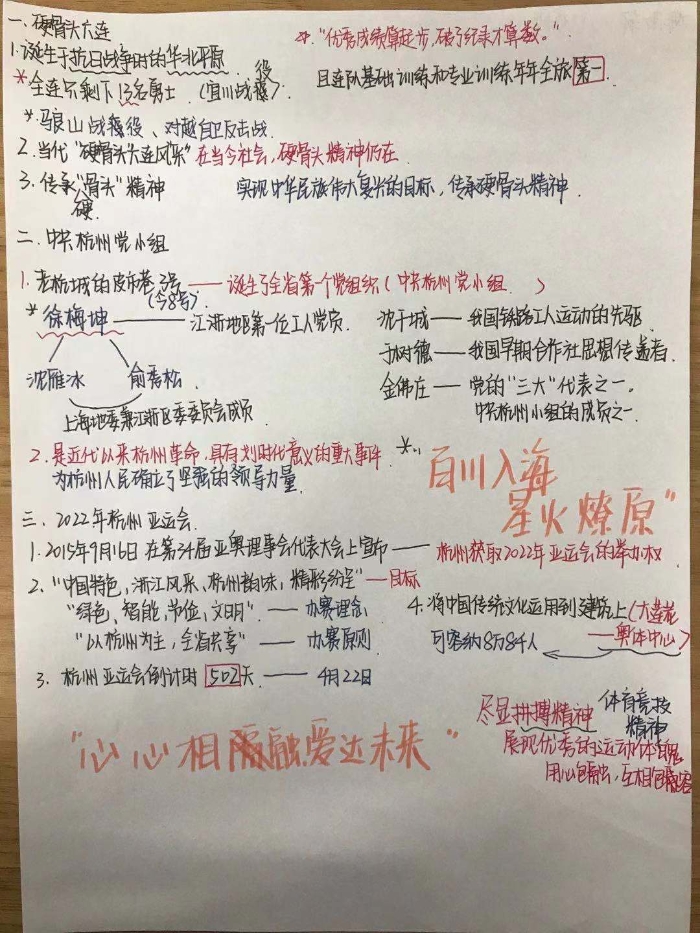 一、硬骨头六连
4. "优秀成绩算起步,破了纪录才算数。"
1.诞生于抗日战争时的华北平原
且连队基础训练和专业训练年年全旅第一
*全连只剩下13名勇士(宜川战役)
*马良山战役、对越自卫反击战
2.当代"硬骨头六连风采"在当今社会,硬骨头精神仍在
3.传承"硬骨头"精神 实现中华民族伟大复兴的目标,传承硬骨头精神
二、中共杭州党小组
1.老杭城的皮市巷3号——诞生了全省第一个党组织(中共杭州党小组)
(今8号)
*徐梅坤——江浙地区第一位工人党员
沈干城——我国铁路工人运动的先驱
于树德——我国早期合作社思想传递者
沈雁冰 俞秀松
金佛庄——党的"三大"代表之一。
中共杭州小组的成员之一
上海地委兼江浙区委委员会成员
2.是近代以来杭州革命,具有划时代意义的重大事件
为杭州人民确立了坚强的领导力量
*"百川入海
星火燎原"
三、2022年杭州亚运会
1.2015年9月16日在第34届亚奥理事会代表大会上宣布——杭州获取2022年亚运会的举办权
2."中国特色,浙江风采、杭州韵味,精彩纷呈"—目标
"绿色、智能,节俭,文明"——办赛理念
"以杭州为主,全省共享"——办赛原则
4.将中国传统文化运用到建筑上(大莲花
——奥体中心)
可容纳8万8千人
3.杭州亚运会倒计时502天——4月22日
尽显拼搏精神 体育竞技
精神
展现优秀的运动体魄
用心融,互相包容
"心心相融,爱达未来"